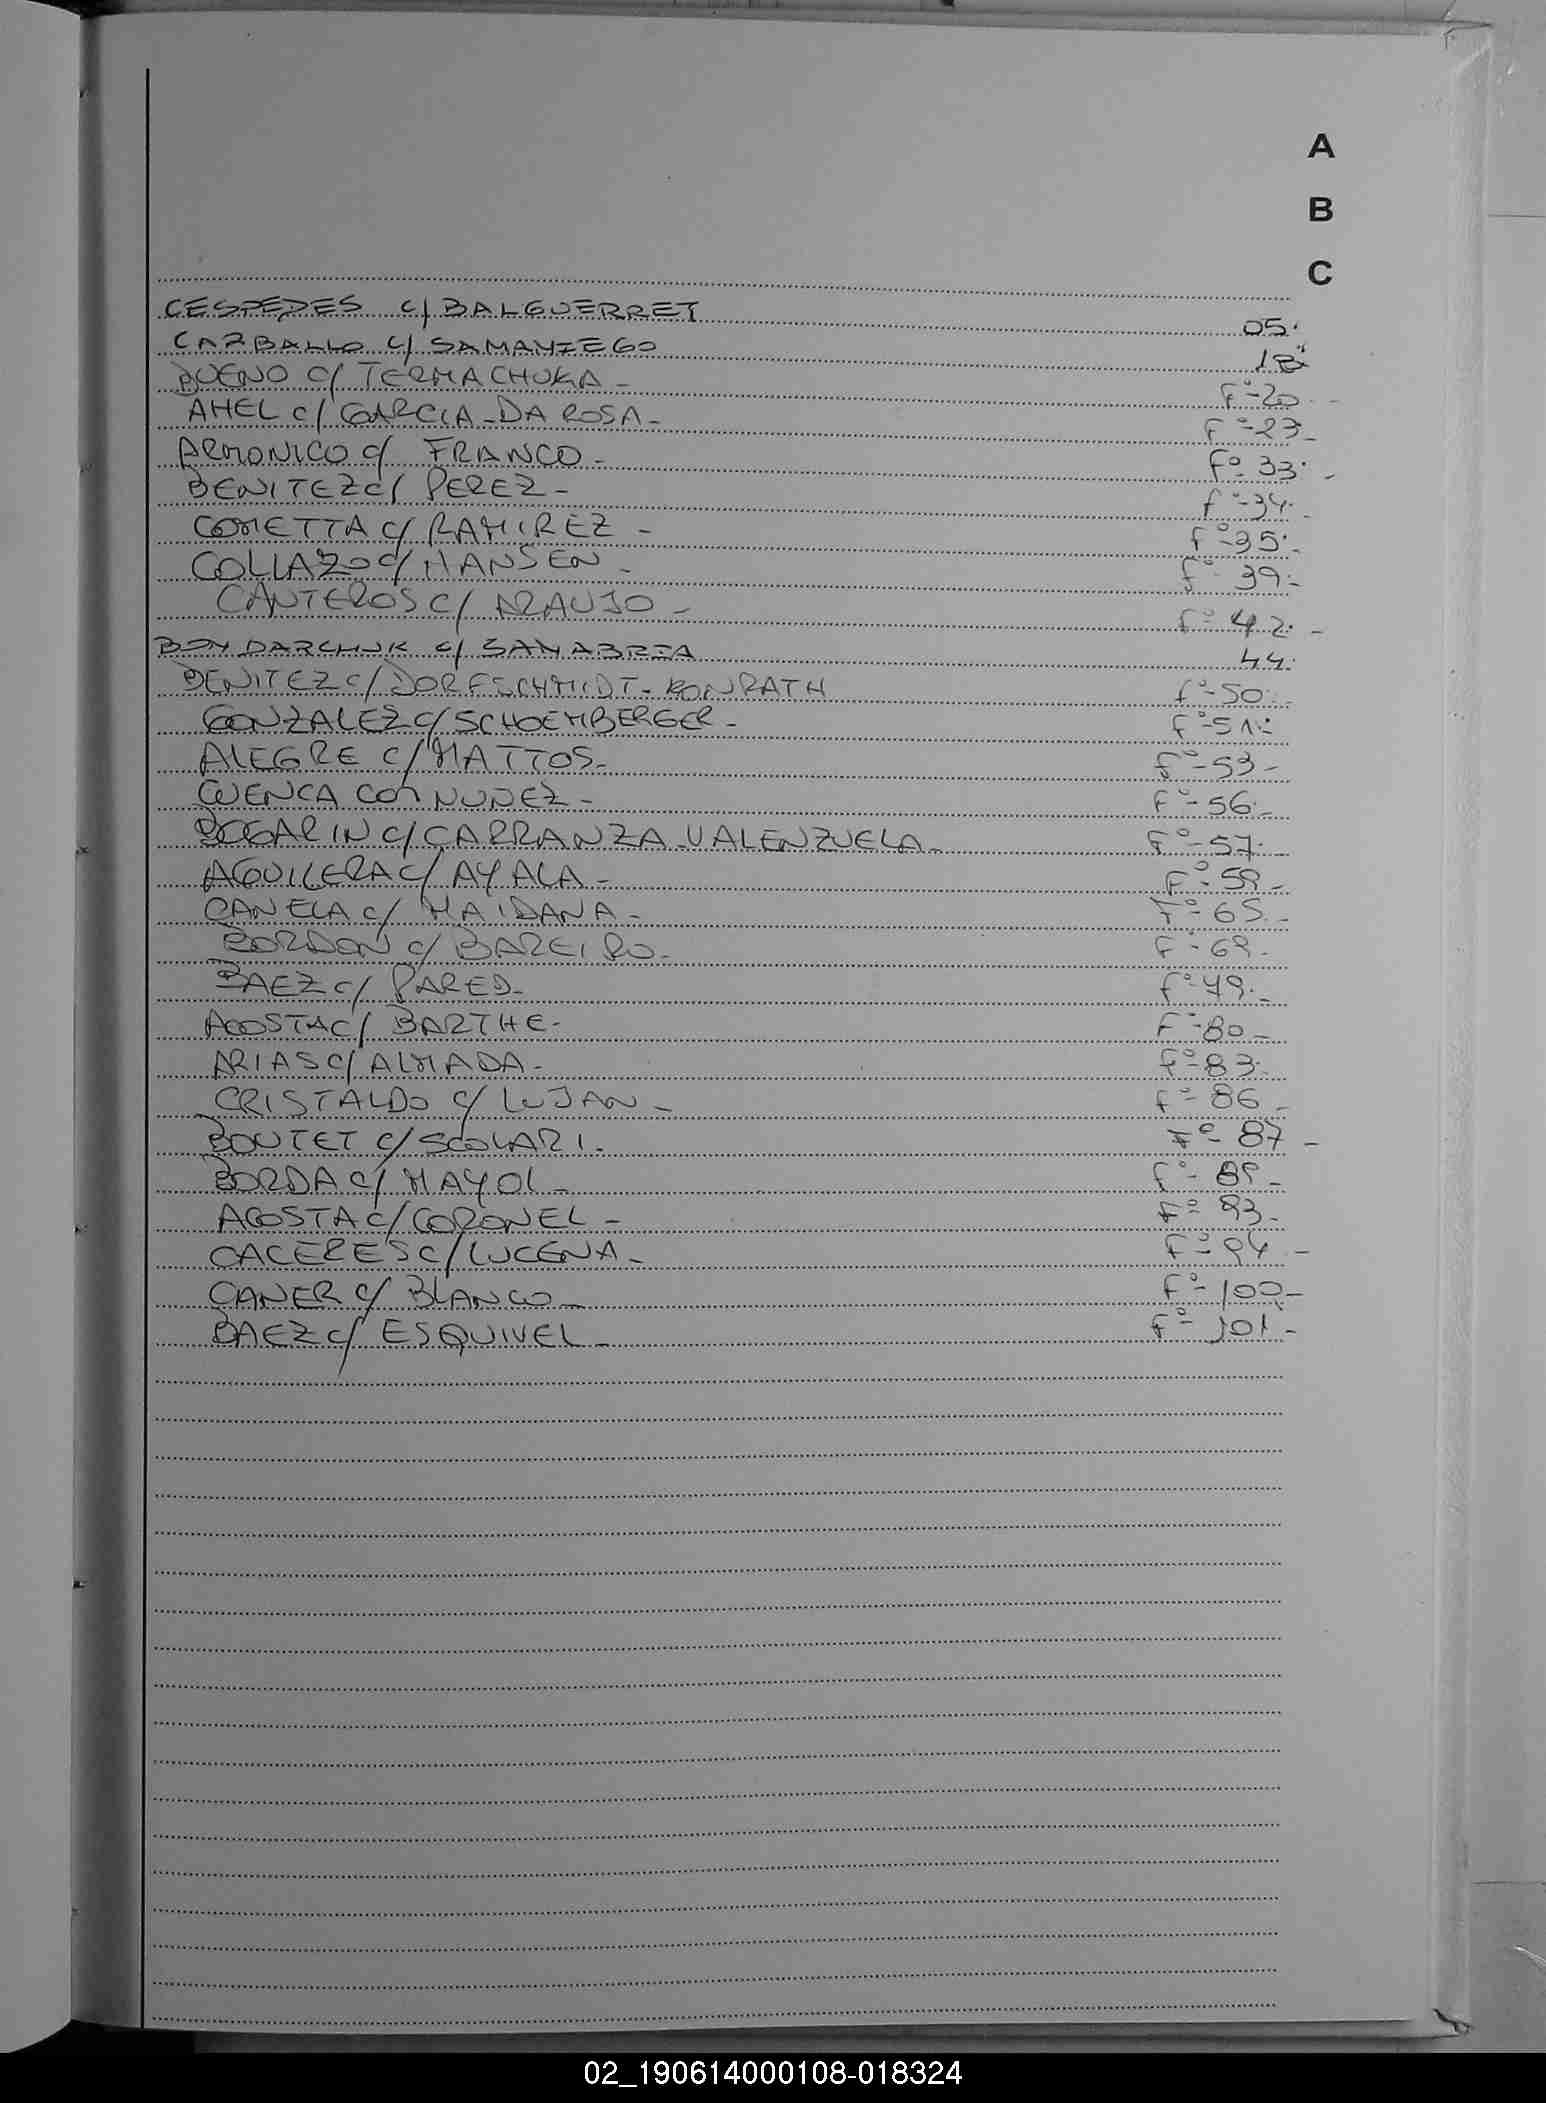 A
B
C
CESPEDES c/ BALGUERRET 05.
CARBALLO c/ SAMANIEGO 18
BUENO c/ TERMACHUKA - Fº-20.-
AHEL c/ GARCIA-DA ROSA.- Fº-23.-
ARMONICO c/ FRANCO - Fº-33.-
BENITEZ c/ PEREZ - fº-34.-
COMETTA c/ RAMIREZ - fº-35.-
COLLAZO c/ HANSEN - fº-39.-
CANTEROS c/ ARAUJO - fº-42.-
BONDARCHUK c/ SANABRIA 44.
BENITEZ c/ DORFSCHMIDT-KONRATH fº-50.-
GONZALEZ c/ SCHOEMBERGER - fº-51.-
ALEGRE c/ MATTOS.- fº-53-
CUENCA con NUÑEZ - Fº-56.-
BOGARIN c/ CARRANZA-VALENZUELA.- Fº-57.-
AGUILERA c/ AYALA - Fº-59-
CANELA c/ MAIDANA - Fº-65.-
BORDON c/ BAREIRO.- Fº-69-
BAEZ c/ PARED.- fº-79.-
ACOSTA c/ BARTHE.- Fº-80-
ARIAS c/ ALMADA.- fº-83.-
CRISTALDO c/ LUJAN - fº-86-
BOUTET c/ SCOLARI. Fº-87-
BORDA c/ MAYOL - fº-89-
ACOSTA c/ CORONEL - Fº-93-
CACERES c/ LUCENA - Fº-94-
CANER c/ BLANCO - Fº-100-
BAEZ c/ ESQUIVEL - Fº-101-
02_190614000108-018324